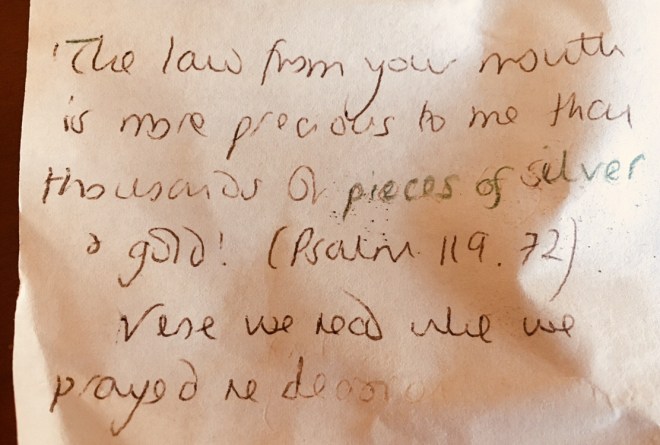 'The law from your mouth
is more precious to me than
thousands of pieces of silver
& gold! (Psalm 119.72)
Verse we read while we
prayed re